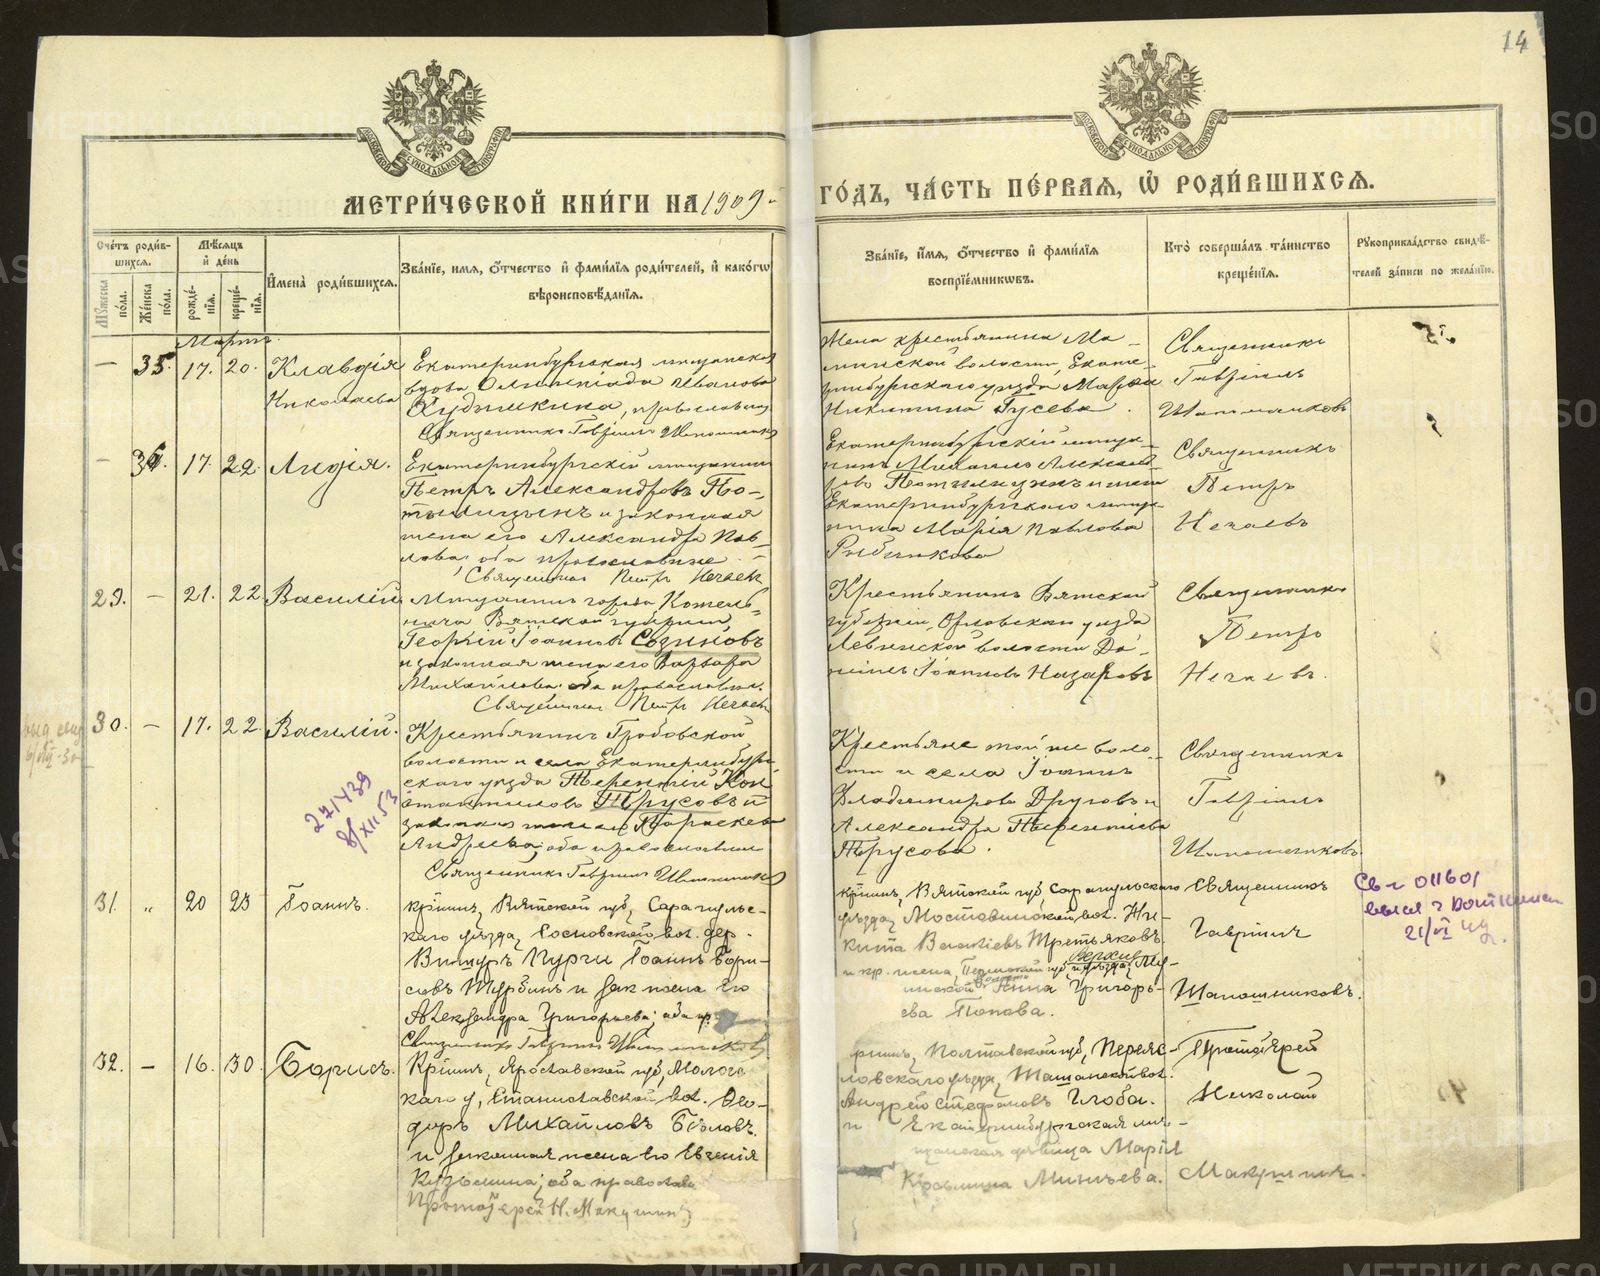 14
МЕТРИ́ЧЕСКОЙ КНИ́ГИ НА 1909
ГО́ДЪ, ЧА́СТЬ ПЕ́РВАЯ, Ѽ РОДИ́ВШИХСЯ.
Сче́тъ роди́вшихся.
Мѣ́сяцъ и де́нь
Мꙋжеска пола.
Же́нска пола.
рожде́нія.
креще́нія.
Имена̀ роди́вшихся.
Зва́ніе, имя, о́тчество и фами́лія роди́телей, и како́гѡ
вѣроисповѣ́данія.
Зва́ніе, и́мя, о́тчество и фами́лія
воспріе́мникѡвъ.
Кто̀ соверша́лъ та́инство
креще́нія.
Рꙋкоприкла́дство свидѣ́-
телей за́писи по жела́нію.
Мартъ
— 35. 17. 20. Клавдія
Николаева
Екатеринбургская мѣщанская
вдова Олимпіада Иванова
Кудышкина, православная
Священникъ Гавріилъ Шапошниковъ
Жена крестьянина Ма-
минской волости, Екате-
ринбургскаго уѣзда Марѳа
Никитина Гусева.
Священникъ
Гавріилъ
Шапошниковъ
— 36. 17. 22. Лидія.
Екатеринбургскій мѣщанинъ
Петръ Александровъ По-
и законная
жена его Александра Пав-
лова, оба православные
Священникъ Петръ Нечаевъ
Екатеринбургскій мѣща-
нинъ Михаилъ Александ-
ровъ
Екатеринбургскаго мѣща-
нина Марія Павлова
Рыбчикова
Священникъ
Петръ
Нечаевъ
29. — 21. 22. Василій
Мѣщанинъ города Котель-
нича Вятской губерніи
Георгій Іоанновъ Сезиновъ
и законная жена его Варвара
Михайлова, оба православные.
Священникъ Петръ Нечаевъ
Крестьянинъ Вятской
губерніи, Орловскаго уѣзда
Левинской волости Да-
ніилъ Іоанновъ Назаровъ
Священникъ
Петръ
Нечаевъ.
30. — 17. 22 Василій.
Крестьянинъ Гробовской
волости и села Екатеринбург-
скаго уѣзда Терентій Кон-
стантиновъ Трусовъ и
законная жена его Параскева
Андреева, оба православные
Священникъ Гавріилъ Шапошниковъ
271439
8/XII 53
Крестьяне той же воло-
сти и села Іоаннъ
Владиміровъ Друговъ и
Александра Терентіева
Трусова.
Священникъ
Гавріилъ
Шапошниковъ
31. „ 20 23 Іоаннъ.
кр-нинъ, Вятской губ., Сарапульс-
каго уѣзда, Сосновской вол. дер.
Пурги Іоаннъ Бори-
совъ Шурбинъ и зак. жена его
Александра Григорьева; оба пр.
Священникъ Гавріилъ Шапошниковъ
кр-нинъ, Вятской губ., Сарапульскаго
уѣзда, Мостовинской вол. Ни-
кита Васильевъ Третьяковъ
и кр. жена, Пермской губ. и уѣзда, Верхне-Му-
линской волости Анна Григорь-
ева Попова.
Священникъ
Гавріилъ
Шапошниковъ.
Св-о 011601
21/VI
32. — 16. 30. Борисъ.
Кр-нинъ, Ярославской губ., Молога-
каго у., Станиславской вол. Ѳео-
доръ Михайловъ Бѣловъ
и законная жена его Евгенія
Кузьмина; оба правосл.
Протоіерей Н. Макушинъ
Полтавской губ., Переяс-
ловскаго уѣзда, Ташанской вол.
Андрей Стефановъ Глоба.
и Екатеринбургская мѣ-
щанская дѣвица Марія
Козьмина Минѣева.
Протоіерей
Николай
Макушинъ.
METRIKI.CASO-URAL.RU